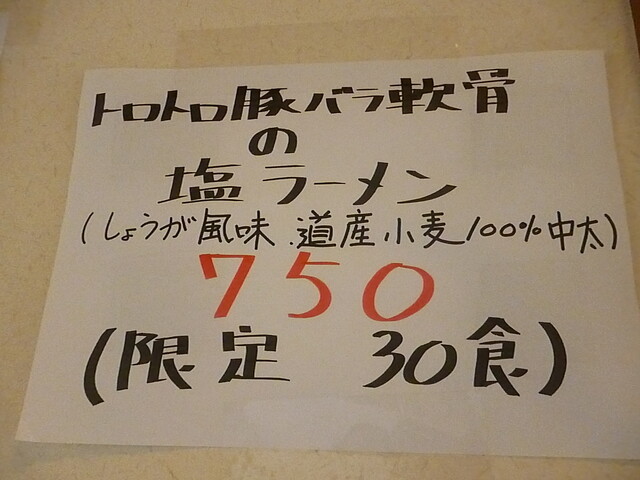 トロトロ豚バラ軟骨
の
塩ラーメン
(しょうが風味 道産小麦100%中太)
750
(限定 30食)